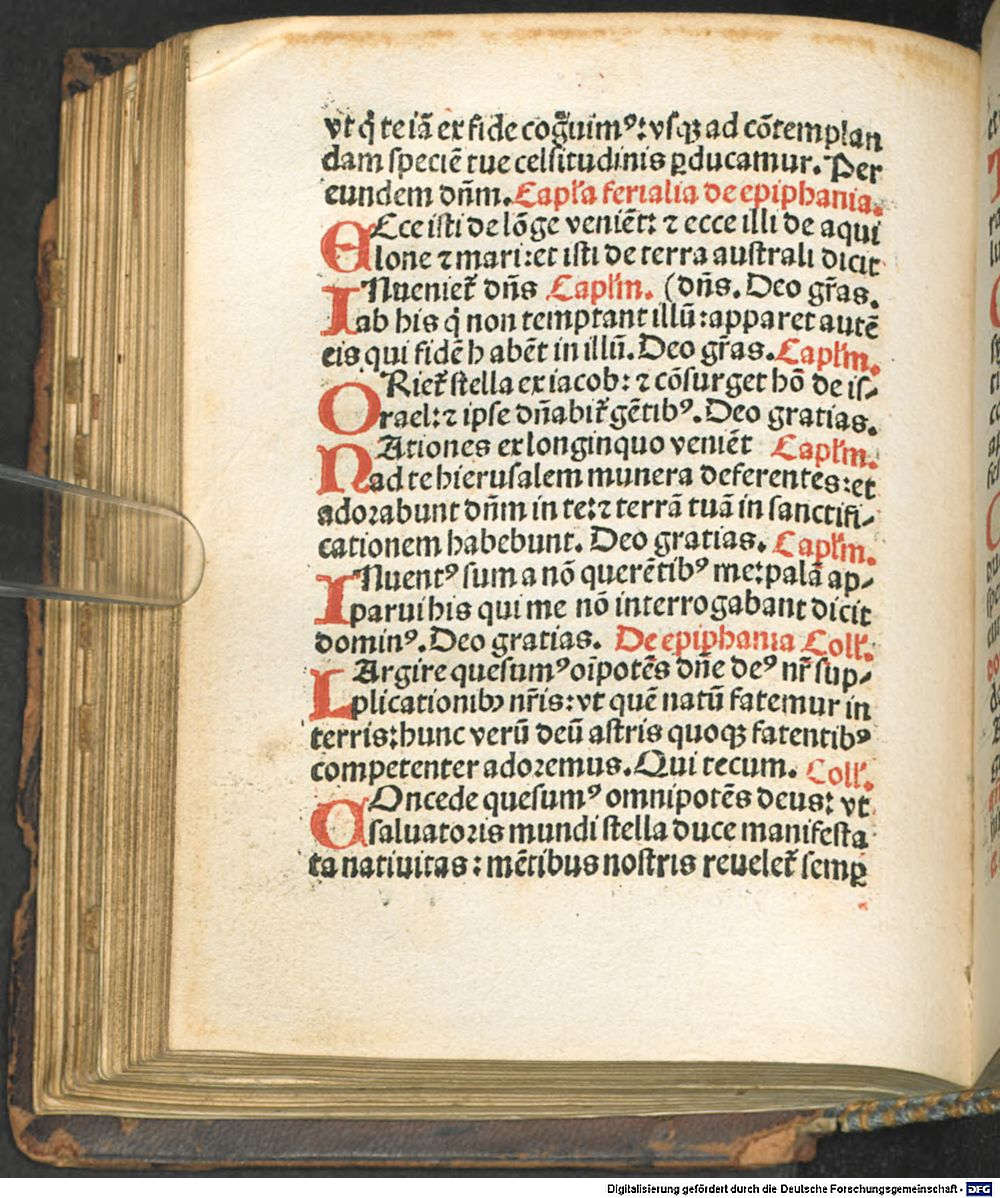 vt q̇ te iā ex fide cog̃uimꝰ: vſqꝫ ad cōtemplan
dam ſpeciē tue celſitudinis ꝑducamur. Per
eundem dn̄m. Capl'a ferialia de epiphania.
ECce iſti de lōge veniēt: ⁊ ecce illi de aqui
lone ⁊ mari: et iſti de terra auſtrali dicit
INueniet̃ dn̄s Capl'm. (dn̄s. Deo gr̄as.
ab his q̇ non temptant illū: apparet autē
eis qui fidē habēt in illū. Deo gr̄as. Capl'm.
ORiet̃ ſtella ex iacob: ⁊ cōſurget hō de iſ⸗
rael: ⁊ ipſe dn̄abit̃ gētibꝰ. Deo gratias.
NAtiones ex longinquo veniēt Capl'm.
ad te hieruſalem munera deferentes: et
adoꝛabunt dn̄m in te: ⁊ terrā tuā in ſanctifi⸗
cationem habebunt. Deo gratias. Capl'm.
INuentꝰ ſum a nō querētibꝰ me: palā ap⸗
parui his qui me nō interrogabant dicit
dominꝰ. Deo gratias. De epiphania Coll'.
LArgire queſumꝰ oīpotēs dn̄e deꝰ nr̄ ſup⸗
plicationibꝰ nr̄is: vt quē natū fatemur in
terris: hunc verū deū aſtris quoqꝫ fatentibꝰ
competenter adoꝛemus. Qui tecum. Coll'.
COncede queſumꝰ omnipotēs deus: vt
ſaluatoꝛis mundi ſtella duce manifeſta
ta natiuitas: mētibus noſtris reuelet̃ ſemꝑ
Digitalisierung gefördert durch die Deutsche Forschungsgemeinschaft - DFG